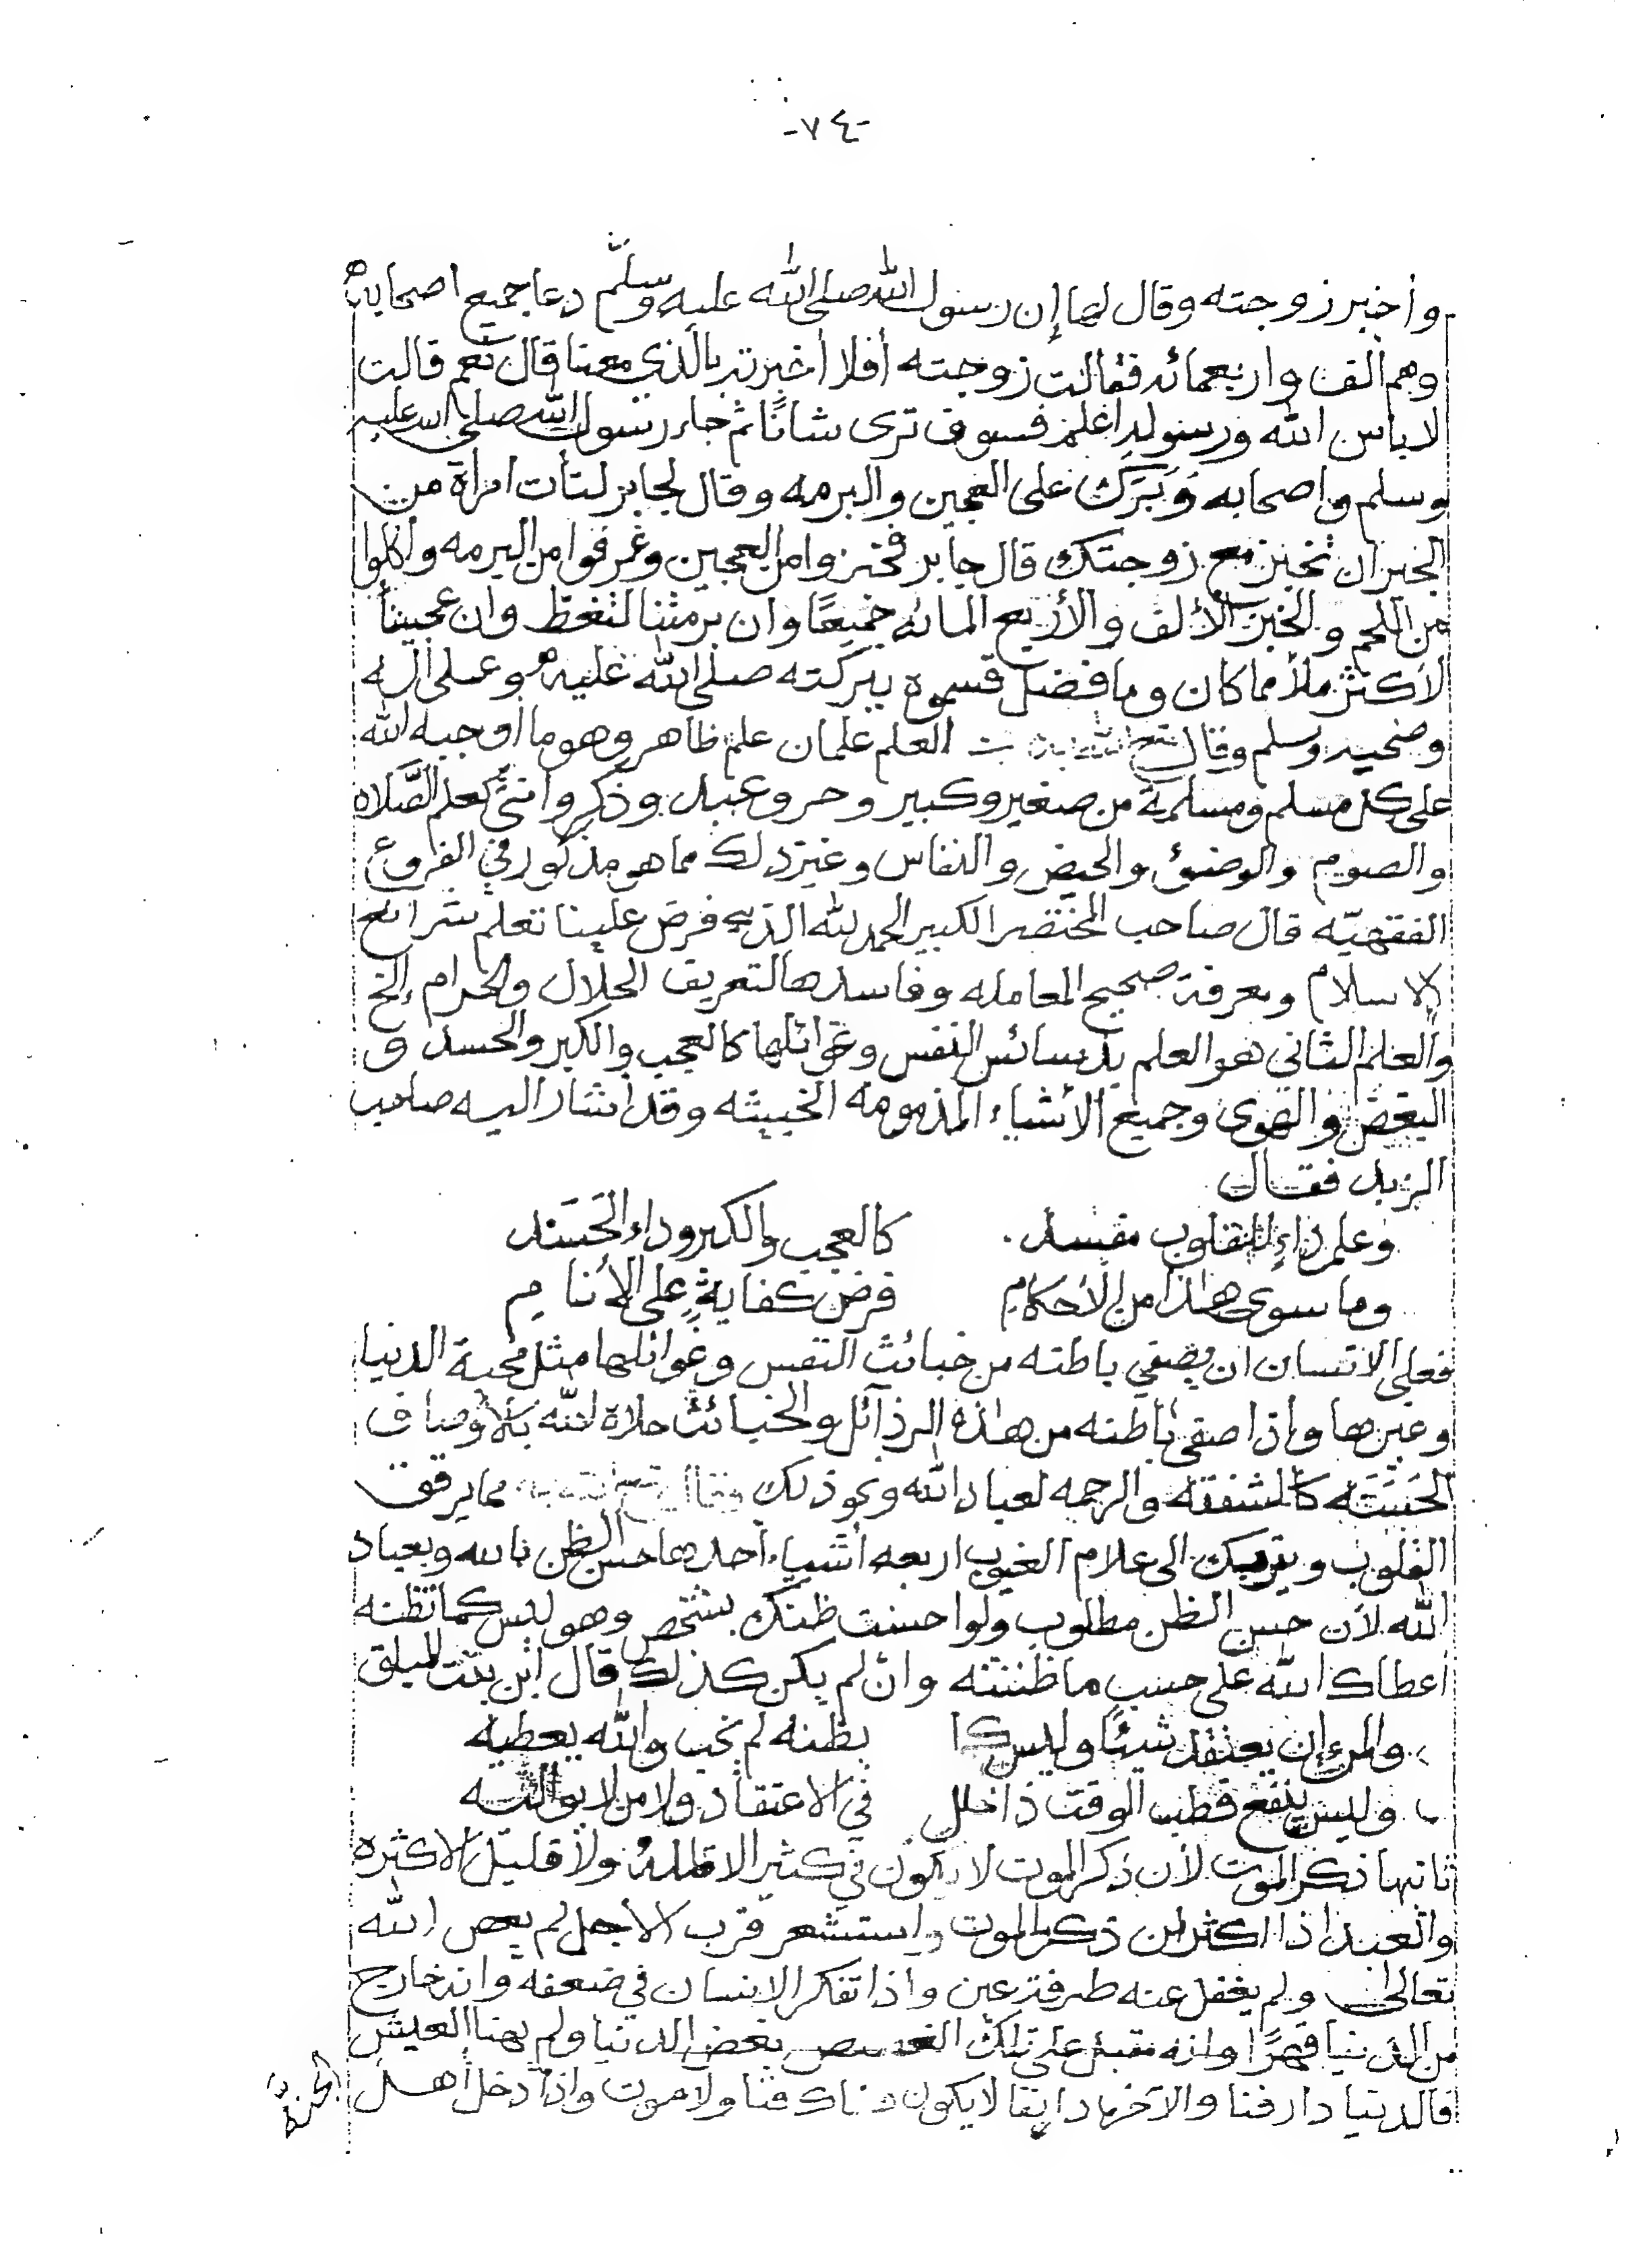 -٧٤-
وأخبر زوجته وقال لها إن رسول الله صلى الله عليه وسلم دعا جميع اصحابه
وهم الف واربعمائه فقالت زوجته أفلا أخبرته بالذي معنا قال نعم قالت
لا باس الله ورسوله اعلم فسوف ترى شانًا ثم جاء رسول الله صلى الله عليه
وسلم واصحابه وَبَرَّك على العجين والبرمه وقال لجابر لتأت امرأة من
الخبزان تخبز مع زوجتك قال جابر فخبزوا من العجين وغرفوا من البرمه وأكلوا
من اللحم والخبز الألف والأربع المائه جميعًا وان برمتنا لتغط وان عجيننا
لأكثر ملأ مما كان وما فضل قسموه ببركته صلى الله عليه وعلى آله
وصحبه وسلم وقال العلم علمان علم ظاهر وهو ما أوجبه الله
على كل مسلم ومسلمة من صغير وكبير وحر وعبد وذكر وانثى كعلم الصَّلاه
والصوم والوضوء والحيض والنفاس وغير ذلك مما هو مذكور في الفروع
الفقهيّه قال صاحب المختصر الكبير الحمد لله الذي فرض علينا تعلم شرائع
الاسلام ومعرفة صحيح المعامله وفاسدها لتعريف الحلال والحرام إلخ
والعلم الثاني هو العلم بدسائس النفس وغوائلها كالعجب والكبر والحسد و
البغض والهوى وجميع الأشياء المذمومه الخبيثه وقد أشار اليه صاحب
الزبد فقال
وعلم داءٍ للقلوب مفسد كالعجب والكبر وداء الحَسَد
وما سوى هذا من الأحكامِ فرض كفايةٍ على الأنامِ
فعلى الانسان ان يصفي باطنه من خبائث النفس وغوائلها مثل محبة الدنيا
وغيرها واذا صفى باطنه من هذه الرذآئل والخبائث حلاه الله بالأوصاف
الحَسَنَه كالشفقه والرحمه لعباد الله ونحو ذلك مما يرقق
القلوب ويقربك الى علام الغيوب اربعه أشياء أحدها حسن الظن بالله وبعباد
الله لأن حسن الظن مطلوب ولو احسنت ظنك بشخص وهو ليس كما تظنه
اعطاك الله على حسب ما ظننته وان لم يكن كذلك قال ابن بنت الميلق
والمرء إن يعتقد شيئًا وليس كما يظنه لم يخب والله يعطيه
وليس ينفع قطب الوقت ذا خلل في الاعتقاد ولا من لا يواليه
ثانيها ذكر الموت لأن ذكر الموت لا يكون في كثير الا قلله ولا قليل الا كثره
والعبد اذا اكثر من ذكر الموت واستشعر قرب الاجل لم يعص الله
تعالى ولم يغفل عنه طرفة عين واذا تفكر الانسان في ضعفه وانه خارج
من الدنيا قهرًا وانه مقبل على تلك بغض الدنيا ولم يهنا العيش
فالدنيا دار فنا والآخره دار بقا لا يكون هناك فنا ولا موت واذا دخل أهل
الجنة